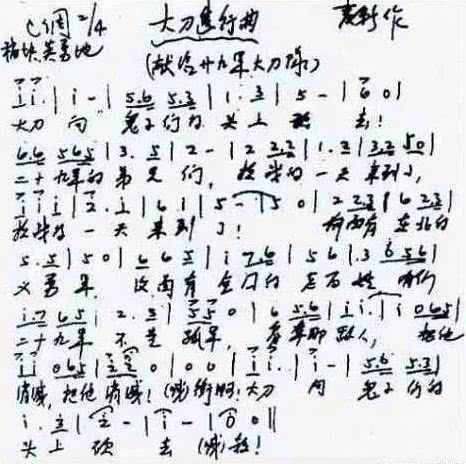 C调 2/4 大刀進行曲 麦新作
稍快 英勇地 (献给廿九军大刀队)
i i. | i - | 5.6 5.3 | 1. 3 | 5 - | 6 0 |
大刀 向 鬼子们的 头上 砍 去!
6.6 565 | 3. 5 | 2 - | 2 2.3 | 1. 2 | 3.2 50 |
二十九军的 弟兄 们, 抗战的 一天 来到了,
i i i | 2. i | 6 i | 5 - | 5 0 | 2 2.3 | 6 2.3 |
抗战的 一天 来到 了! 前面有 东北的
5. 5 | 5 0 | 6 6 5 | i 7.6 | 5 6 | .3 6 5.6 |
义勇军, 后面有 全国的 老百姓, 咱们
i.7 6.5 | 2. 3 | 5 5 0 | 6 5.6 | i i. | i 0 6.5 |
二十九军 不是 孤军, 看准那 敌人, 把他
i i 0 6.5 | 2 2 0 | 0 0 | i i. | i - | 5.6 5.3 |
消滅, 把他 消滅! (喊) 衝啊! 大刀 向 鬼子们的
i. 3 | 2 - | i - | 6 0 ||
头上 砍 去 (喊) 杀!